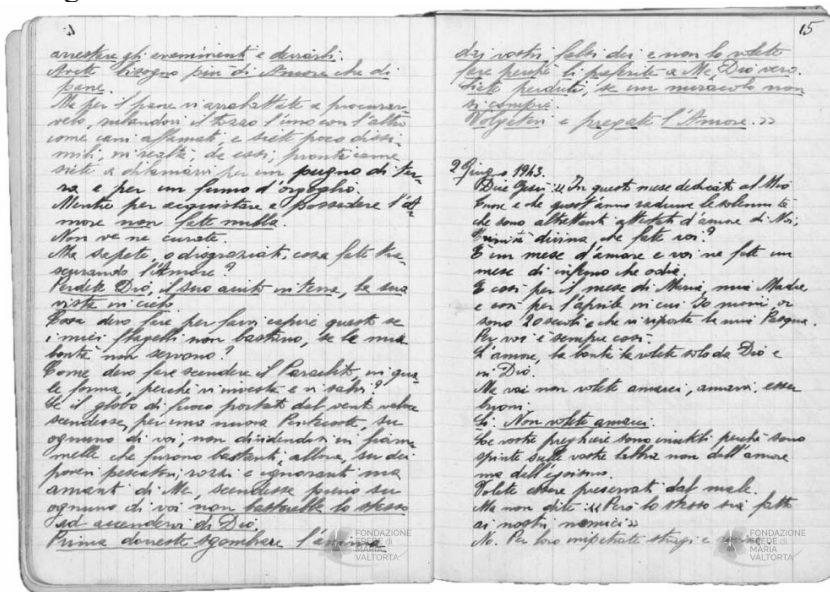 arrestare gli avvenimenti e deviarli.
Avete bisogno più di Amore che di
pane.
Ma per il pane vi arrabattate a procurar-
velo, rubandovi il tozzo l'uno con l'altro
come cani affamati, e siete poco dissi-
mili, in realtà, da essi, pronti come
siete a dilaniarvi per un pugno di ter-
ra e per un fumo d'orgoglio.
Mentre per acquistare e possedere l'A-
more non fate nulla.
Non ve ne curate.
Ma sapete, o disgraziati, cosa fate tra-
scurando l'Amore?
Perdete Dio, il suo aiuto in terra, la sua
vista in cielo.
Cosa devo fare per farvi capire questo se
i miei flagelli non bastano, se la mia
bontà non servono?
Come devo fare scendere il Paraclito, in qua-
le forma, perché vi investa e vi salvi?
Se il globo di fuoco portato dal vento veloce
scendesse, per una nuova Pentecoste, su
ognuno di voi, non dividendosi in fiam-
melle che furono bastanti, allora, su dei
poveri pescatori, rozzi e ignoranti ma
amanti di Me, scendesse pieno su
ognuno di voi non basterebbe lo stesso
ad accendervi di Dio.
Prima dovreste sgombrare l'anima
15
dai vostri falsi dei e non lo volete
fare perché li preferite a Me, Dio vero.
Siete perduti, se un miracolo non
si compie.
Volgetevi e pregate l'Amore.»
2 Giugno 1943.
Dice Gesù: «In questo mese dedicato al Mio
Cuore e che quest'anno raduna le solennità
che sono altrettanti attestati d'amore di Noi,
Trinità divina, che fate voi?
È un mese d'amore e voi ne fate un
mese di inferno che odia.
E così per il mese di Maria, mia Madre,
e così per l'aprile in cui 30 minori or
sono 20 secoli e che vi riporta la mia Pasqua.
Per voi è sempre così.
L'amore, la bontà la volete solo da Dio e
in Dio.
Ma voi non volete amarci, amarvi, esser
buoni.
Sì. Non volete amarci.
Le vostre preghiere sono inutili perché sono
spinte sulle vostre labbra non dall'amore
ma dall'egoismo.
Volete essere preservati dal male.
Ma non dite: «Però lo stesso sia fatto
ai nostri nemici»
No. Per loro impetrate stragi e
FONDAZIONE
EREDE di
MARIA
VALTORTA
FONDAZIONE
EREDE di
MARIA
VALTORTA